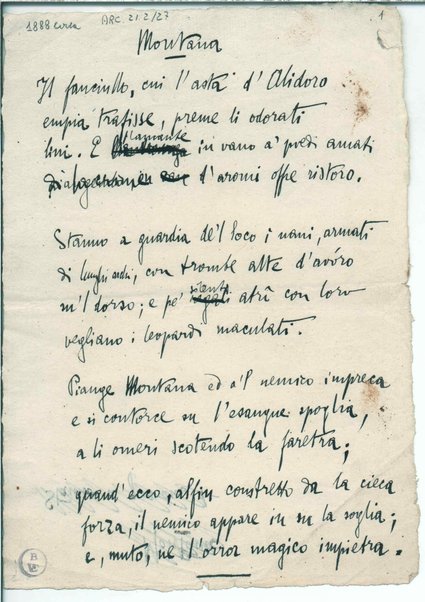 1888 circa
ARC. 21.2/27
1
Montana
Il fanciullo, cui l'asta d'Alidoro
empia trafisse, preme li odorati
lini. E l'amante in vano a' piedi amati
d'aromi offre ristoro.
Stanno a guardia de'l loco i nani, armati
di lunghi, con trombe alte d'avóro
su'l dorso; e pe' silenti atrî con loro
vegliano i leopardi maculati.
Piange Montana ed a'l nemico impreca
e si contorce su l'esangue spoglia,
a li omeri scotendo la faretra;
quand'ecco, alfin constretto da la cieca
forza, il nemico appare in su la soglia;
e, muto, ne l'orror magico impietra.